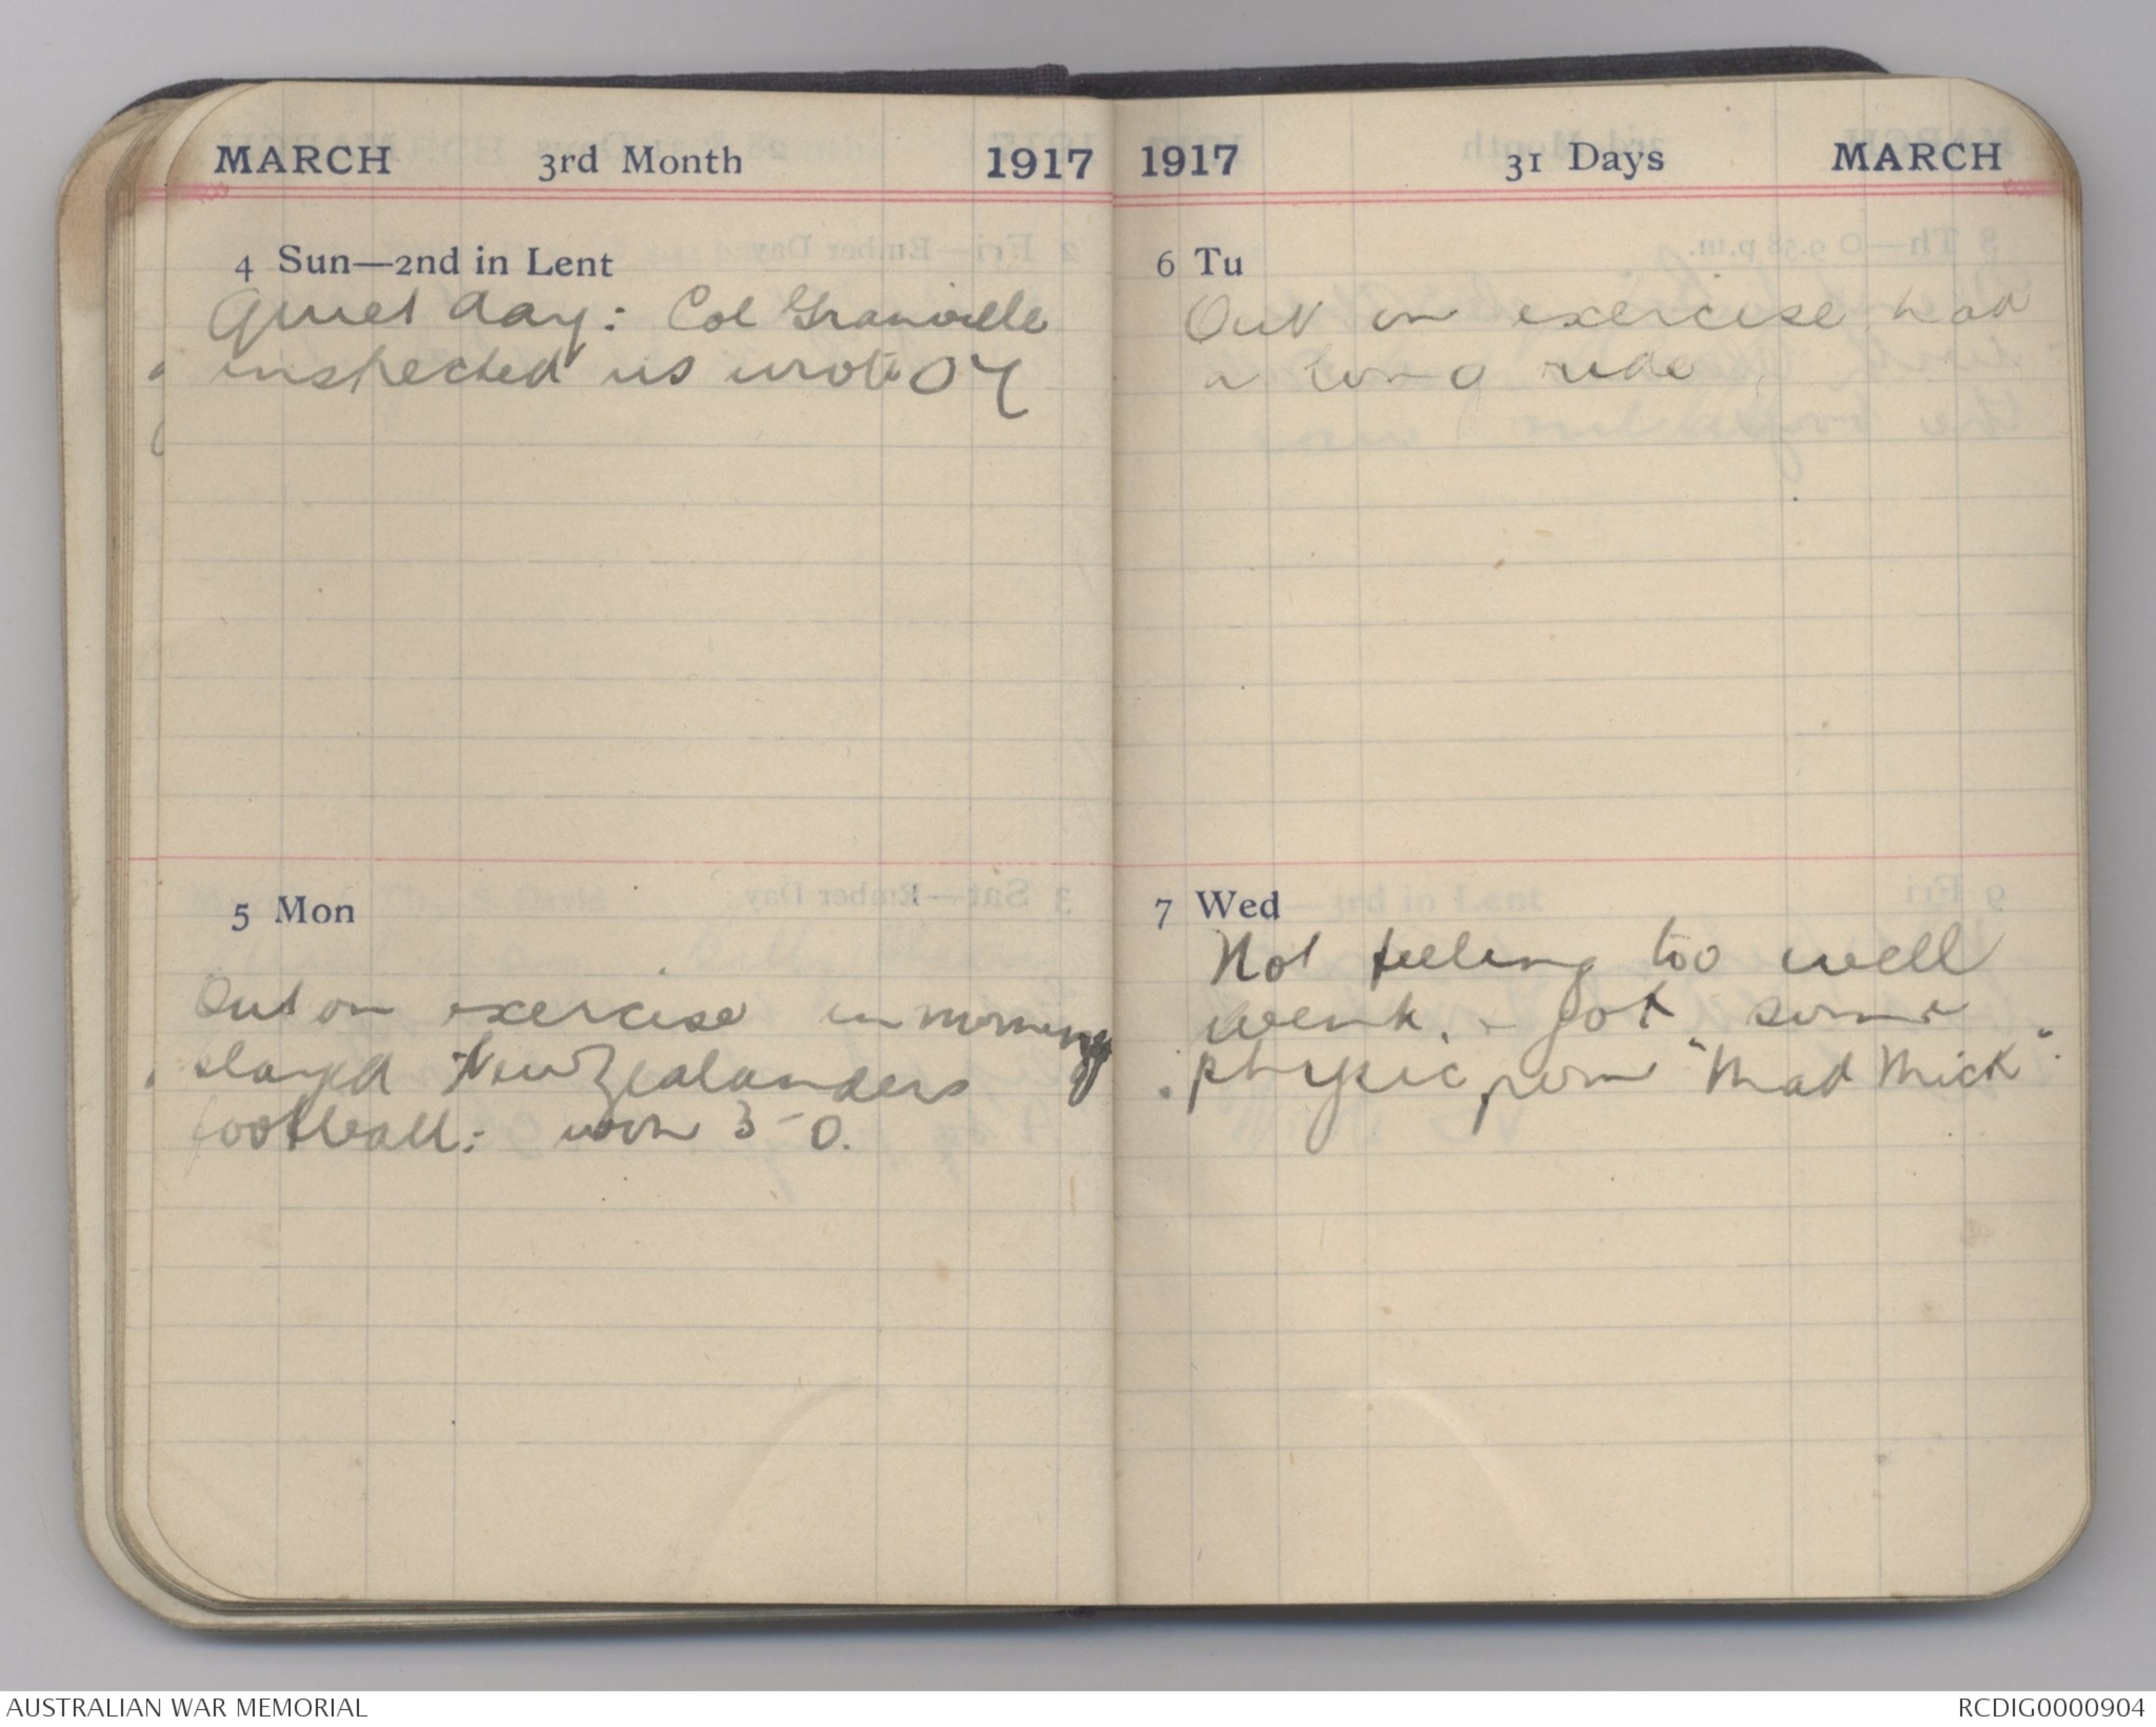 MARCH 3rd Month 1917
4 Sun—2nd in Lent
Quiet day: Col Granville
inspected us wrote
5 Mon
Out on exercise in morning
played New Zealanders
football: won 3-0.
1917 31 Days MARCH
6 Tu
Out on exercise had
a long ride
7 Wed
Not feeling too well
weak. + got some
physic from "Mad Mick".
AUSTRALIAN WAR MEMORIAL
RCDIG0000904